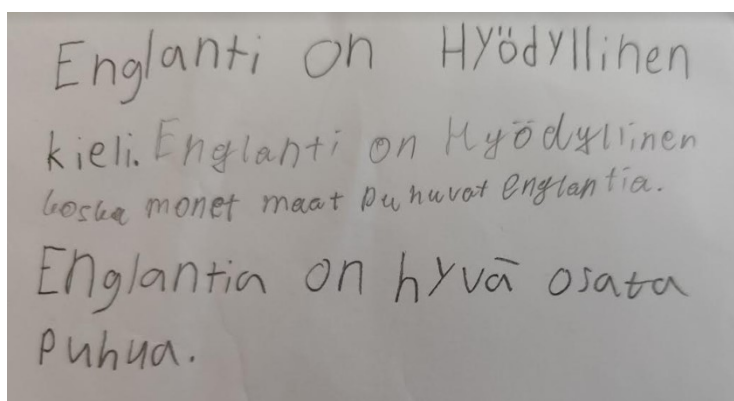 Englanti on Hyödyllinen
kieli. Englanti on Hyödyllinen
koska monet maat puhuvat englantia.
Englantia on hyvä osata
puhua.